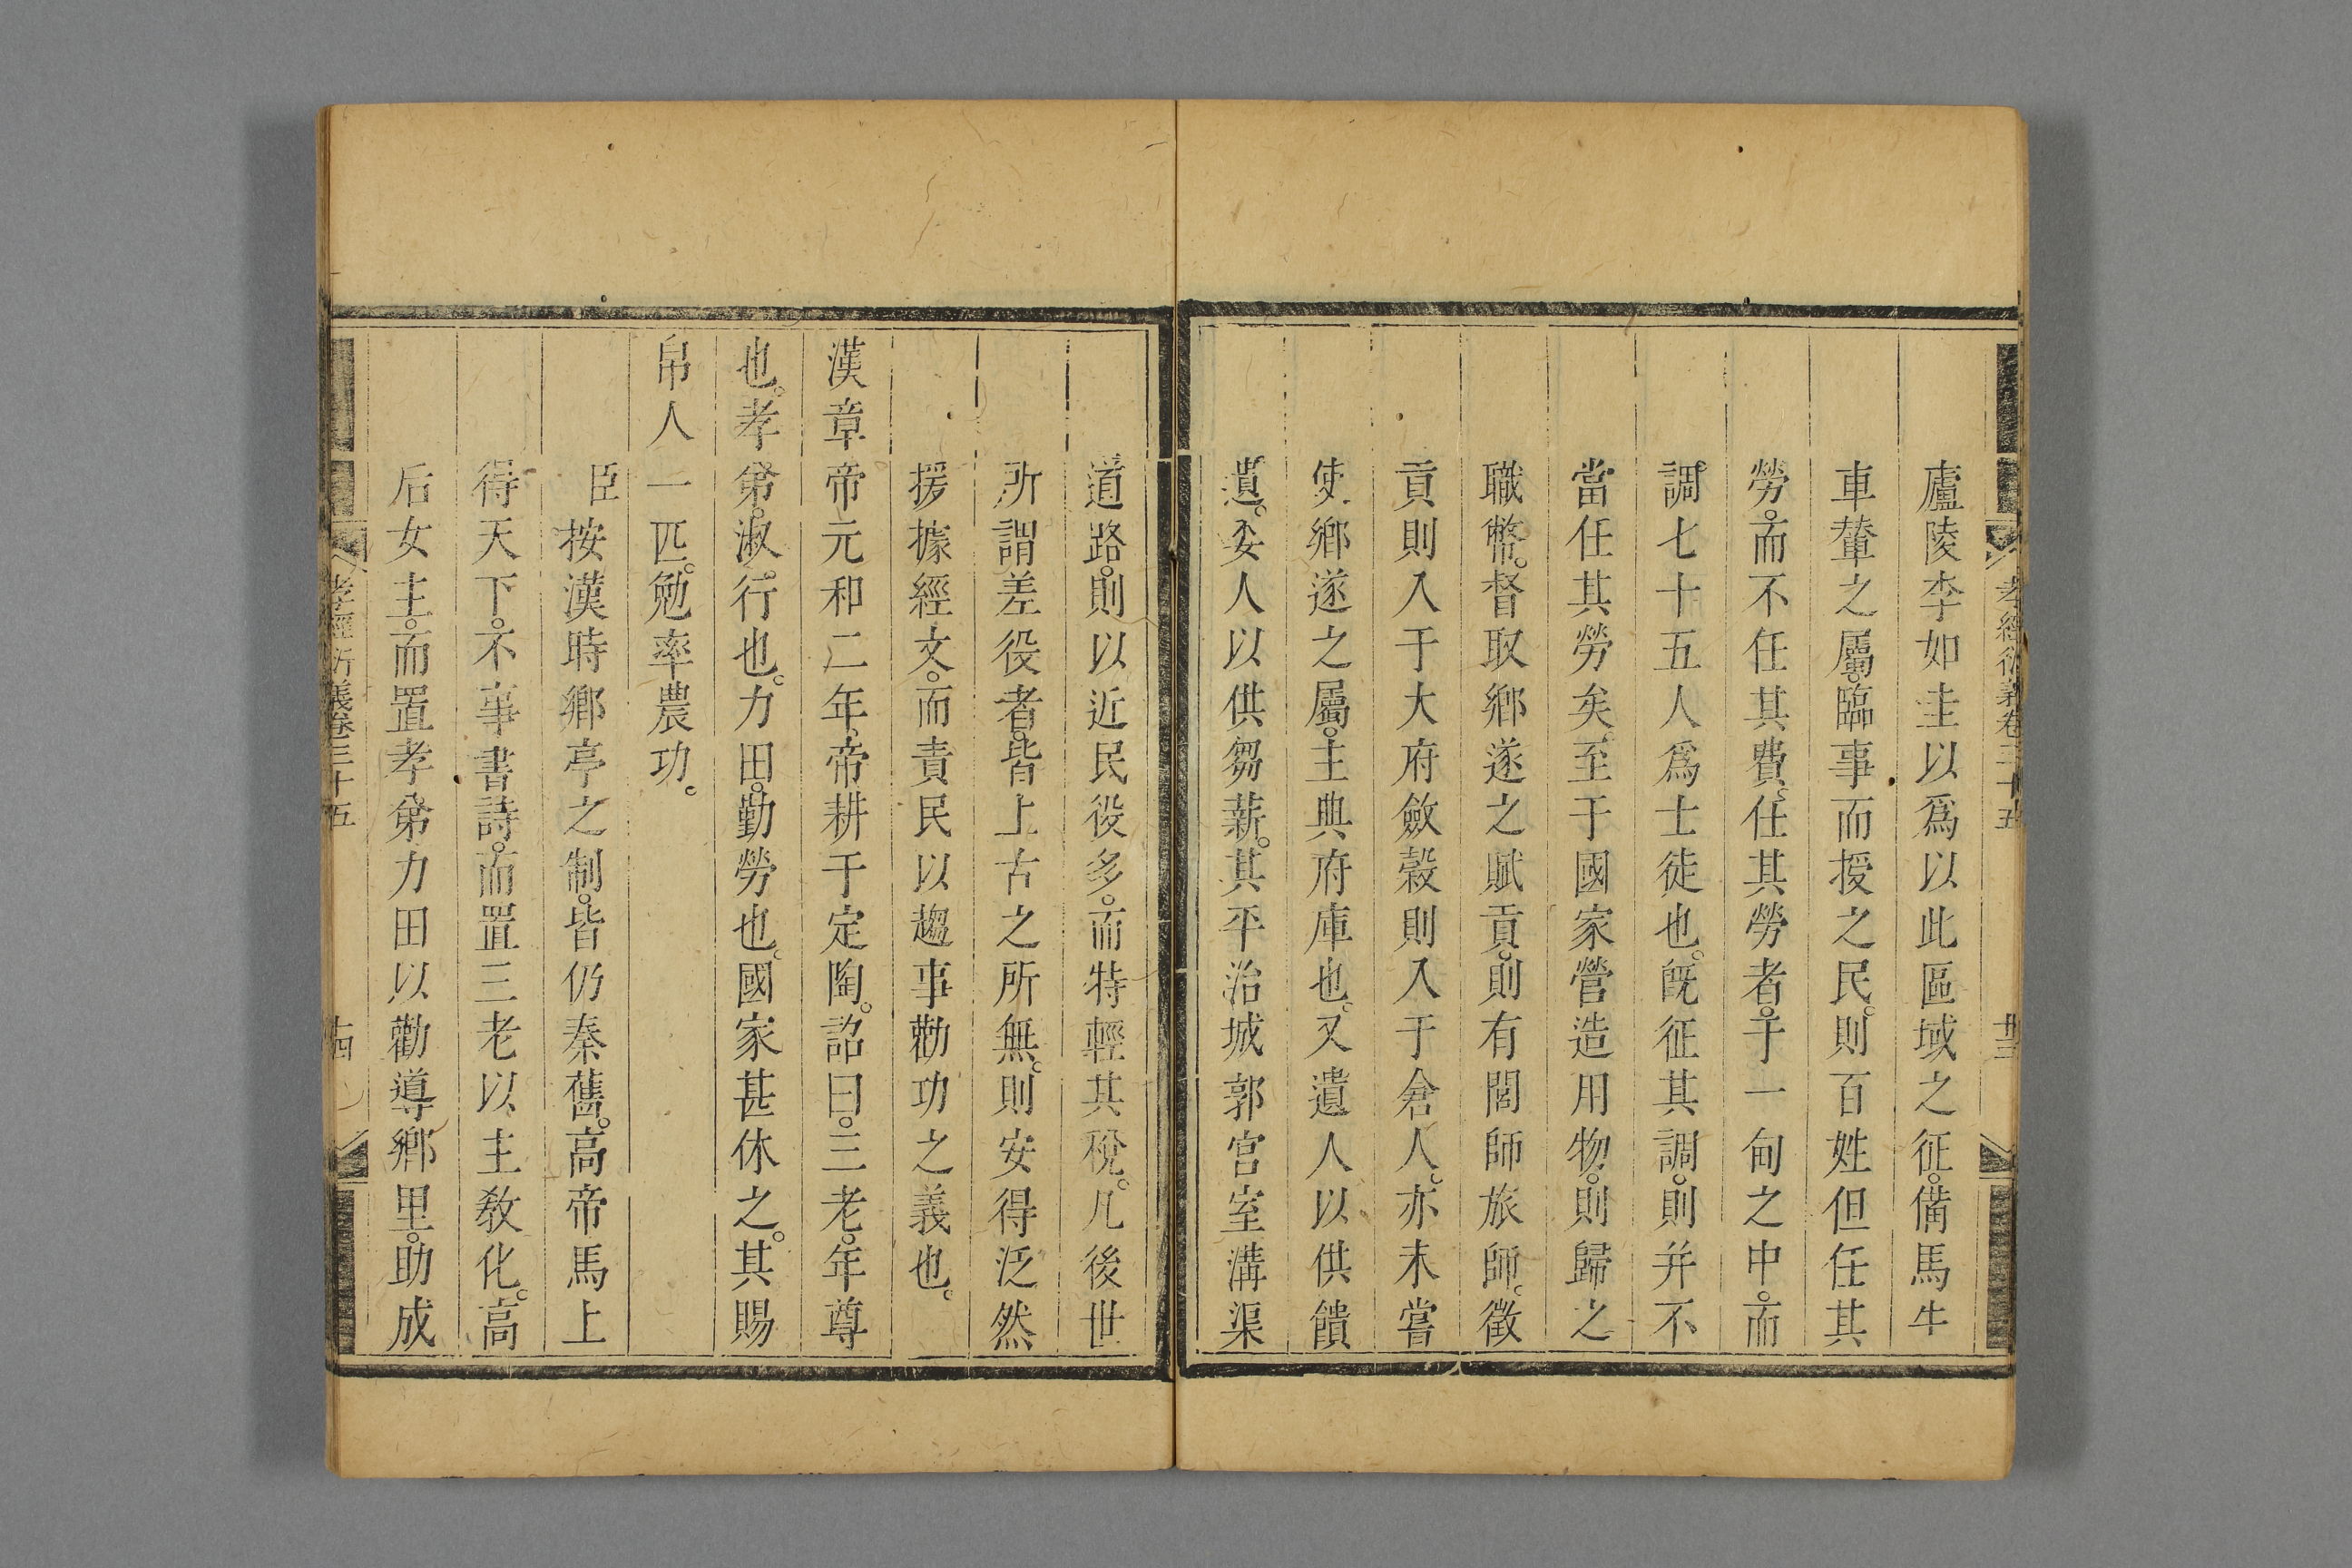 廬陵李如圭以爲以此區域之征。備馬牛
車輦之屬。臨事而授之民。則百姓但任其
勞。而不任其費。任其勞者。于一甸之中。而
調七十五人爲士徒也。旣征其調。則并不
當任其勞矣。至于國家營造用物。則歸之
職幣。督取鄉遂之賦貢。則有閭師旅師。徵
貢則入于大府。斂穀則入于倉人。亦未嘗
使鄉遂之屬。主典府庫也。又遺人以供饋
遺。委人以供芻薪。其平治城郭宮室溝渠
道路。則以近民役多。而特輕其稅。凡後世
所謂差役者。皆上古之所無。則安得泛然
援據經文。而責民以趨事勸功之義也。
漢章帝元和二年。帝耕于定陶。詔曰。三老。年尊
也。孝弟。淑行也。力田。勤勞也。國家甚休之。其賜
帛人一匹。勉率農功。
臣按漢時鄉亭之制。皆仍秦舊。高帝馬上
得天下。不事書詩。而置三老以主敎化。高
后女主。而置孝弟力田以勸導鄉里。助成
孝經衍義卷三十五